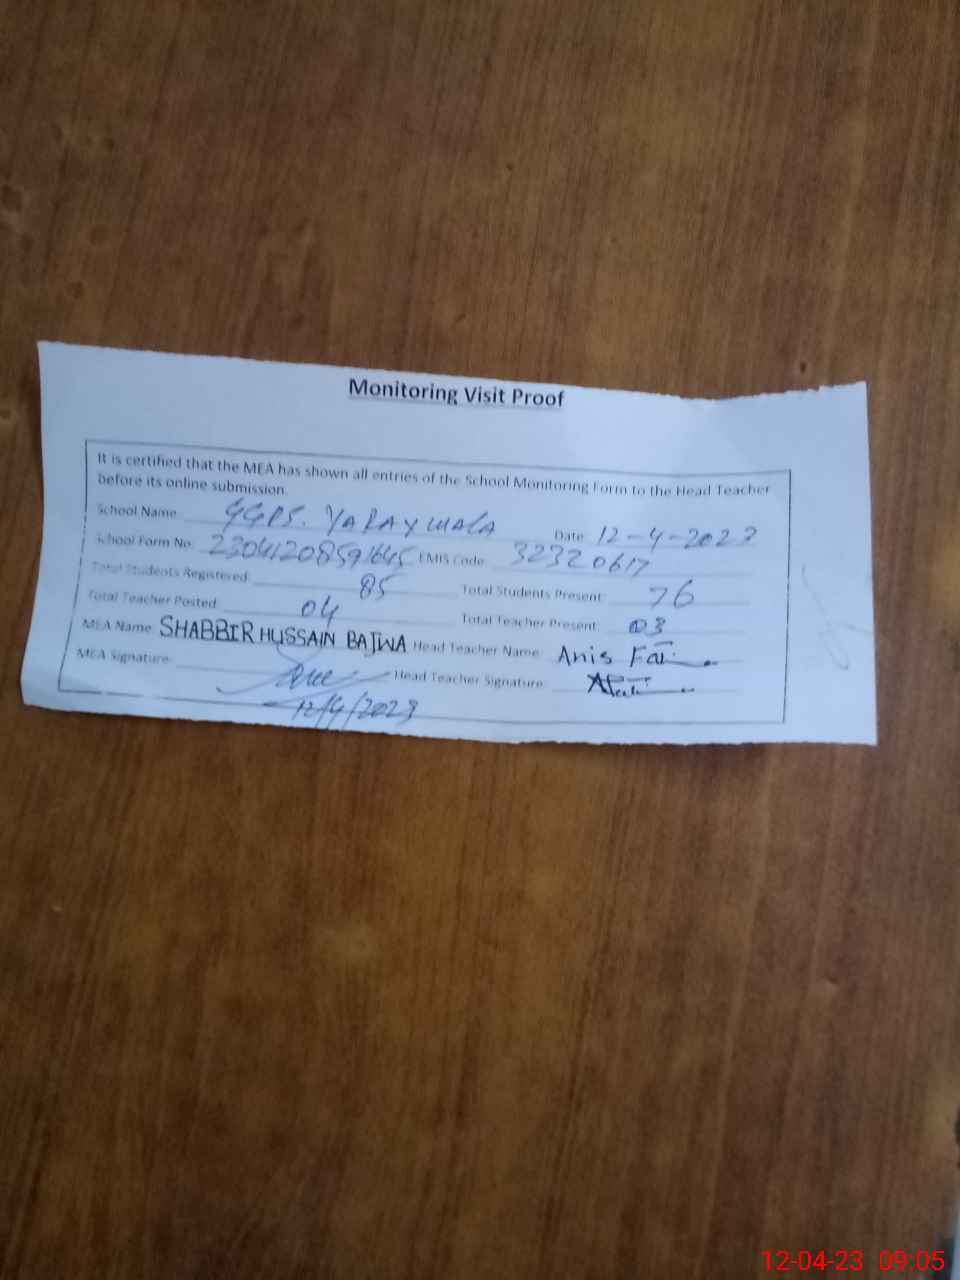 Monitoring Visit Proof
It is certified that the MEA has shown all entries of the School Monitoring Form to the Head Teacher
before its online submission.
School Name: GGPS. YARAYWALA Date: 12-4-2023
School Form No: 23041208591645 EMIS Code: 32320617
Total Students Registered: 85 Total Students Present: 76
Total Teacher Posted: 04 Total Teacher Present: 03
MEA Name: SHABBIR HUSSAIN BAJWA Head Teacher Name: Anis
MEA Signature: Head Teacher Signature:
12/4/2023
12-04-23 09:05